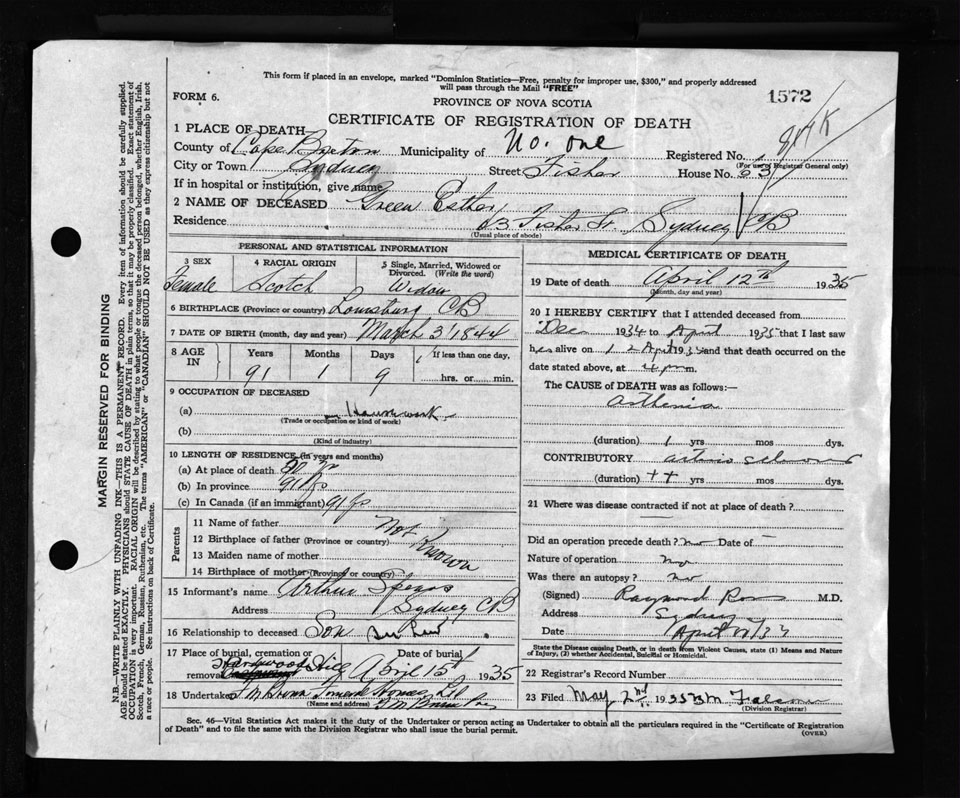 This form if placed in an envelope, marked "Dominion Statistics—Free, penalty for improper use, $300," and properly addressed
will pass through the Mail "FREE"
FORM 6.
PROVINCE OF NOVA SCOTIA
1572
CERTIFICATE OF REGISTRATION OF DEATH
1 PLACE OF DEATH
County of Cape Breton Municipality of No. One Registered No.
(For use of Registrar General only)
City or Town Sydney Street Fisher House No. 63
If in hospital or institution, give name
2 NAME OF DECEASED Green Esther
Residence 63 Fisher St. Sydney CB
(Usual place of abode)
PERSONAL AND STATISTICAL INFORMATION
3 SEX 4 RACIAL ORIGIN 5 Single, Married, Widowed or Divorced. (Write the word)
Female Scotch Widow
6 BIRTHPLACE (Province or country) Louisburg CB
7 DATE OF BIRTH (month, day and year) March 3 1844
8 AGE IN Years Months Days If less than one day,
91 1 9 hrs. or min.
9 OCCUPATION OF DECEASED
(a) Housework
(Trade or occupation or kind of work)
(b)
(Kind of industry)
10 LENGTH OF RESIDENCE (in years and months)
(a) At place of death
(b) In province 91 yrs
(c) In Canada (if an immigrant) 91 yrs
Parents
11 Name of father Not
12 Birthplace of father (Province or country) Known
13 Maiden name of mother
14 Birthplace of mother (Province or country)
15 Informant's name Arthur
Address Sydney CB
16 Relationship to deceased Son in Law
17 Place of burial, cremation or removal Hardwood Hill
Date of burial April 15th 1935
18 Undertaker
(Name and address)
MEDICAL CERTIFICATE OF DEATH
19 Date of death April 12th 1935
(Month, day and year)
20 I HEREBY CERTIFY that I attended deceased from
Dec 1934 to April 1935 that I last saw
her alive on 12 April 1935 and that death occurred on the
date stated above, at 4 p m.
The CAUSE of DEATH was as follows:—
Asthenia
(duration) 1 yrs mos dys.
CONTRIBUTORY
(duration) ++ yrs mos dys.
21 Where was disease contracted if not at place of death?
Did an operation precede death? no Date of —
Nature of operation no
Was there an autopsy? no
(Signed) Raymond Ross M.D.
Address Sydney
Date April
State the Disease causing Death, or in death from Violent Causes, state (1) Means and Nature
of Injury, (2) whether Accidental, Suicidal or Homicidal.
22 Registrar's Record Number
23 Filed May 2nd 1935
(Division Registrar)
Sec. 46—Vital Statistics Act makes it the duty of the Undertaker or person acting as Undertaker to obtain all the particulars required in the "Certificate of Registration
of Death" and to file the same with the Division Registrar who shall issue the burial permit.
(OVER)
MARGIN RESERVED FOR BINDING
N.B.—WRITE PLAINLY WITH UNFADING INK—THIS IS A PERMANENT RECORD. Every item of information should be carefully supplied.
AGE should be stated EXACTLY. PHYSICIANS should STATE CAUSE OF DEATH in plain terms, so that it may be properly classified. Exact statement of
OCCUPATION is very important. RACIAL ORIGIN will be described by stating to what people or tongue the deceased person belonged, whether English, Irish,
Scotch, French, German, Russian, Ruthenian, etc. The terms "AMERICAN" or "CANADIAN" SHOULD NOT BE USED as they express citizenship but not
a race or people. See instructions on back of Certificate.